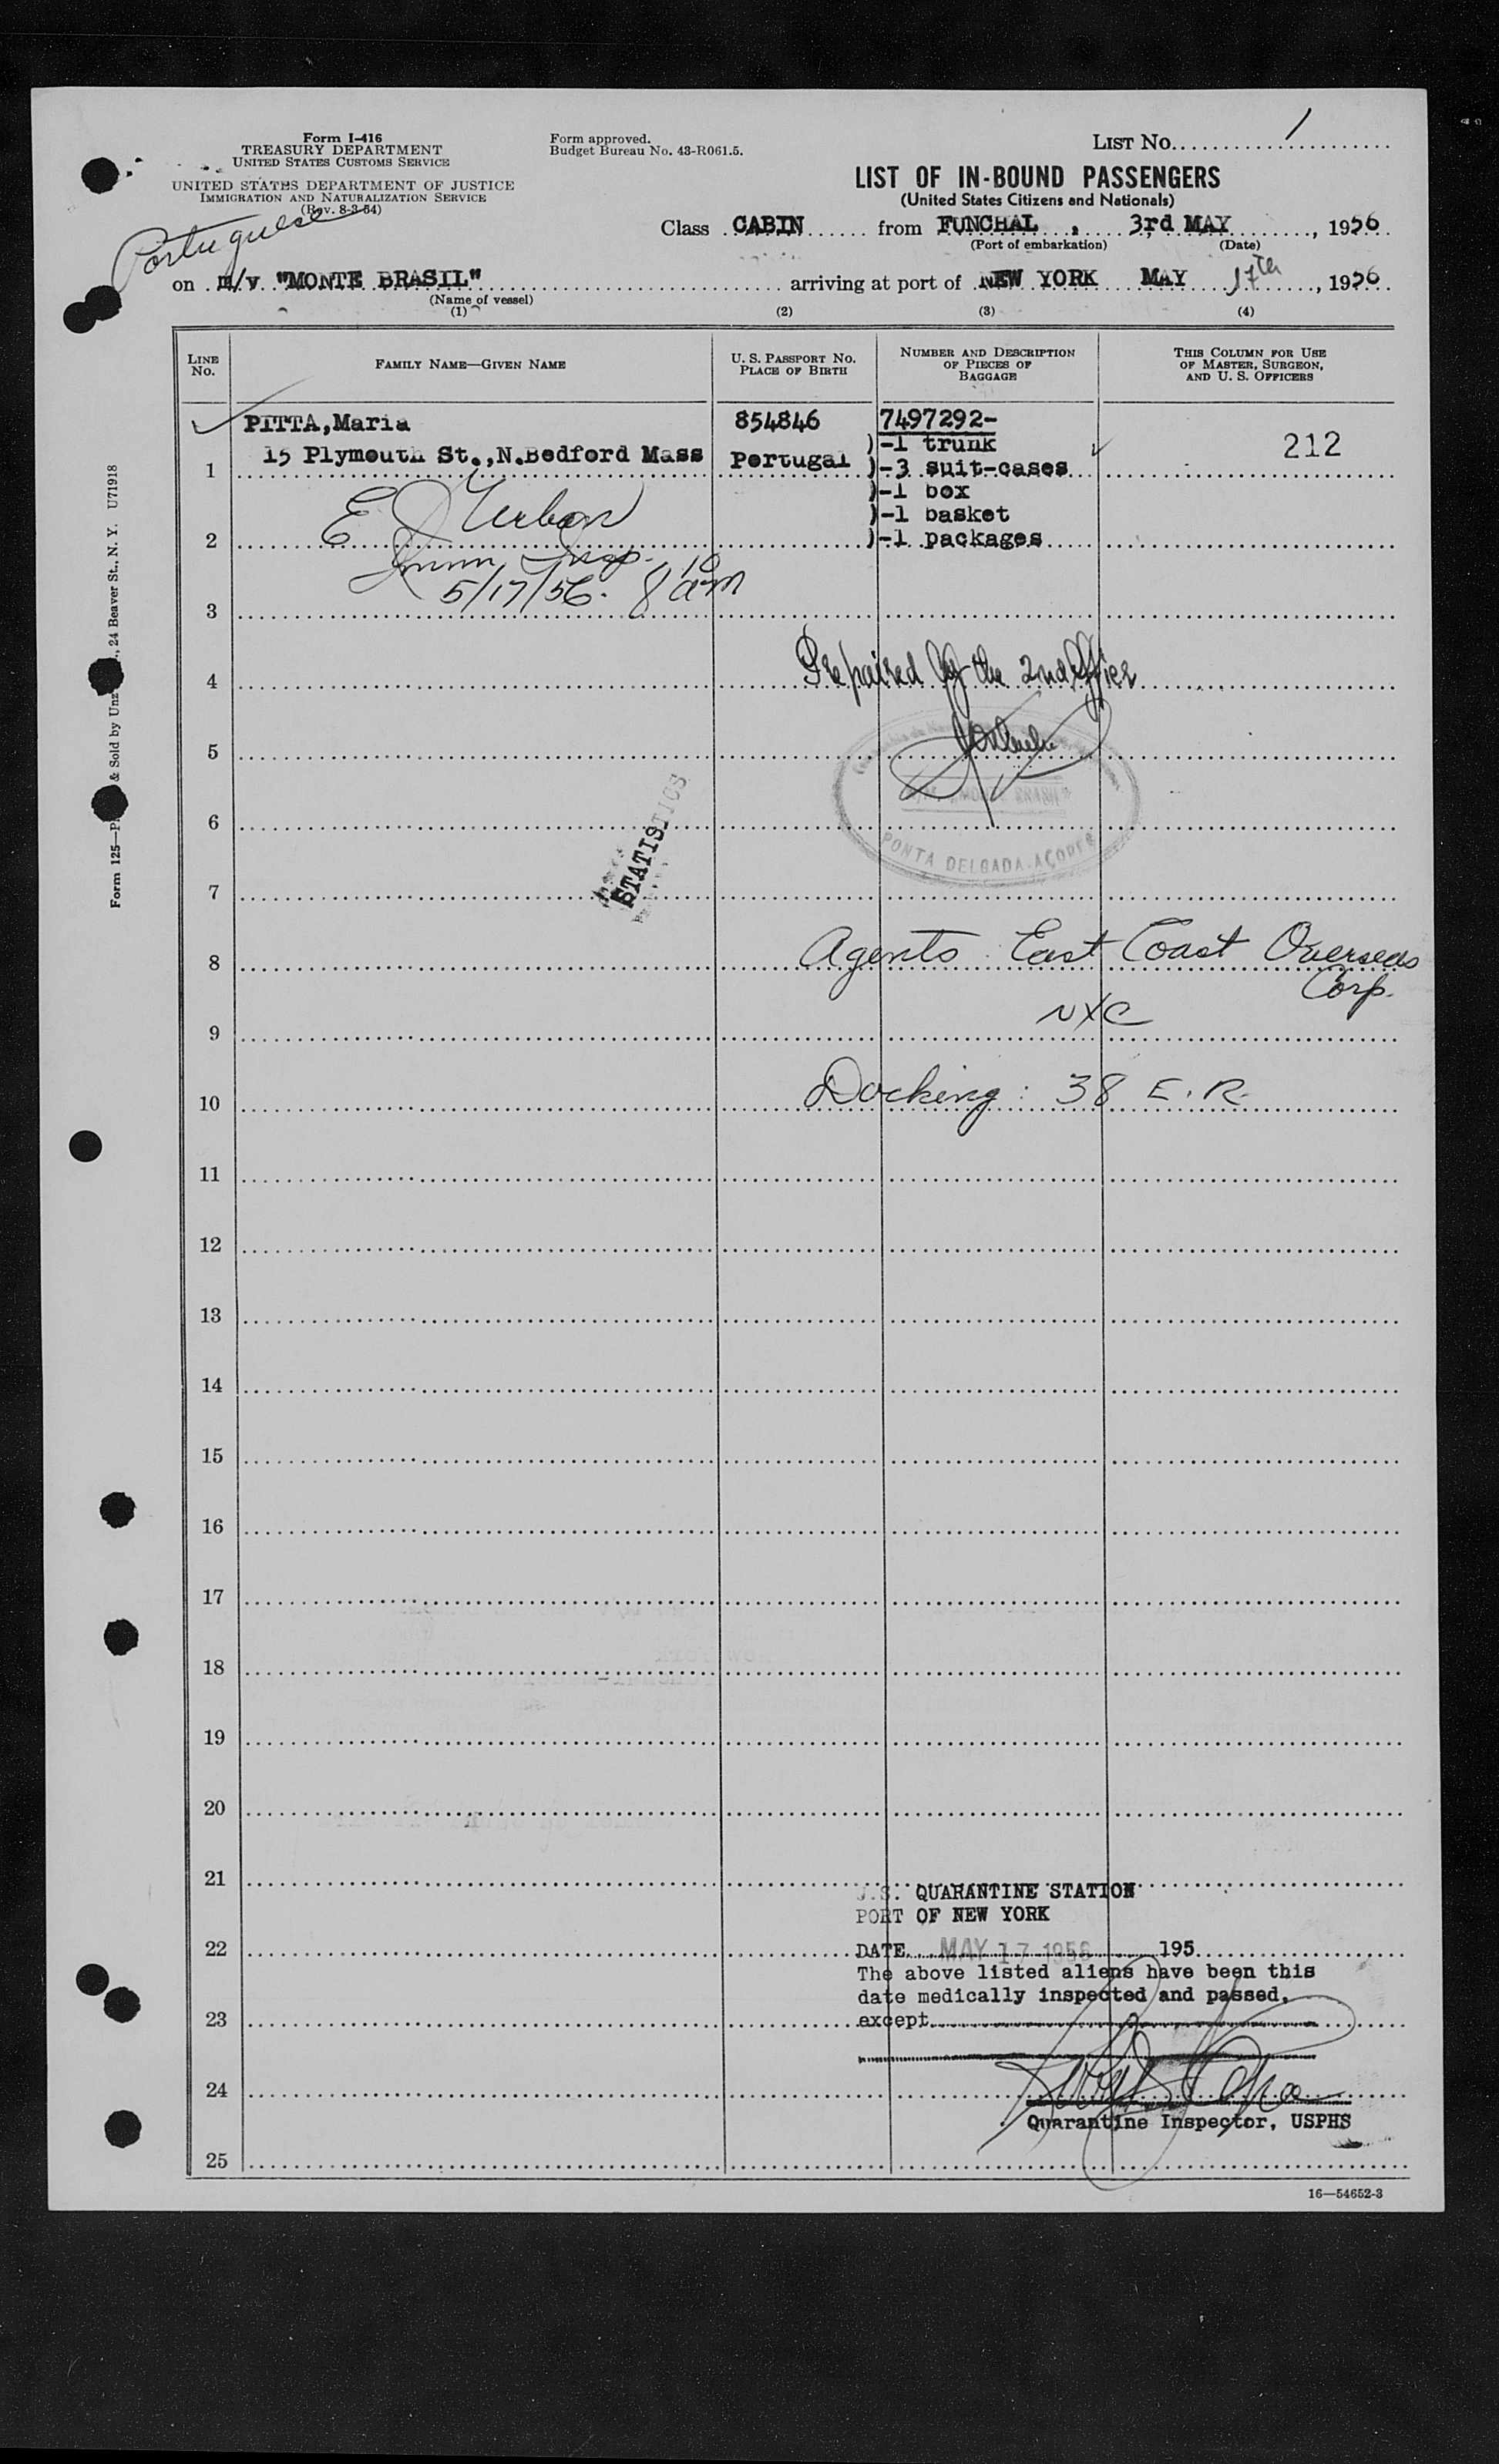 Form I-416
TREASURY DEPARTMENT
UNITED STATES CUSTOMS SERVICE
UNITED STATES DEPARTMENT OF JUSTICE
IMMIGRATION AND NATURALIZATION SERVICE
(Rev. 8-3-54)
Portuguese
Form approved.
Budget Bureau No. 43-R061.5.
LIST No. 1
LIST OF IN-BOUND PASSENGERS
(United States Citizens and Nationals)
Class CABIN from FUNCHAL, 3rd MAY, 1956
(Port of embarkation) (Date)
on m/v "MONTE BRASIL" arriving at port of NEW YORK MAY 17th, 1956
(Name of vessel)
(1) (2) (3) (4)
LINE No.
FAMILY NAME—GIVEN NAME
U. S. PASSPORT No.
PLACE OF BIRTH
NUMBER AND DESCRIPTION
OF PIECES OF
BAGGAGE
THIS COLUMN FOR USE
OF MASTER, SURGEON,
AND U. S. OFFICERS
PITTA,Maria 854846 7497292-
)-1 trunk 212
15 Plymouth St.,N.Bedford Mass Portugal
1 )-3 suit-cases
)-1 box
E J Urban )-1 basket
2 )-1 packages
Imm Insp.
5/17/56. 8 10 am
3
Prepaired by the 2nd officer
4
5
6
MONTE BRASIL
PONTA DELGADA-AÇORES
STATISTICS
7
Agents East Coast Overseas
8
Corp.
NYC
9
Docking: 38 E. R.
10
11
12
13
14
15
16
17
18
19
20
21
U.S. QUARANTINE STATION
PORT OF NEW YORK
22
DATE MAY 17 1956 195
The above listed aliens have been this
date medically inspected and passed,
23
except
24
Quarantine Inspector, USPHS
25
16—54652-3
Form 125—P & Sold by Unz , 24 Beaver St., N. Y. U71918